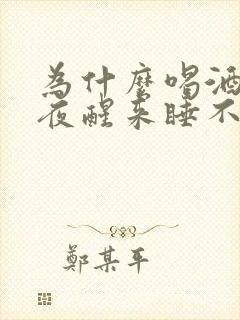 為什麼喝酒
夜醒來睡不
鄭某平